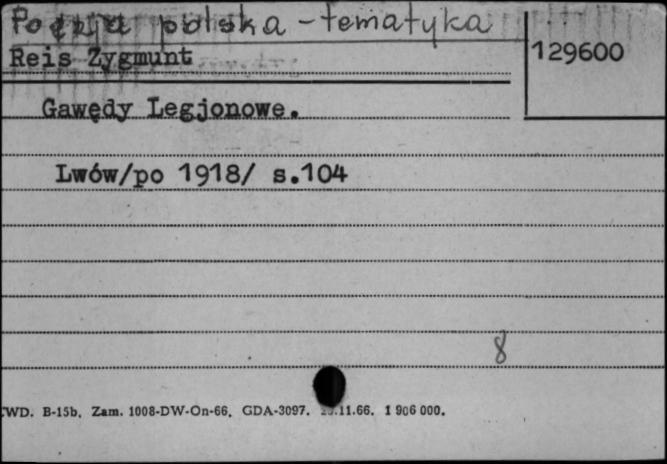 Poezja polska - tematyka
129600
Reis Zygmunt
Gawędy Legjonowe.
Lwów/po 1918/ s.104
8
WD. B-15b. Zam. 1008-DW-On-66. GDA-3097. .11.66. 1 906 000.